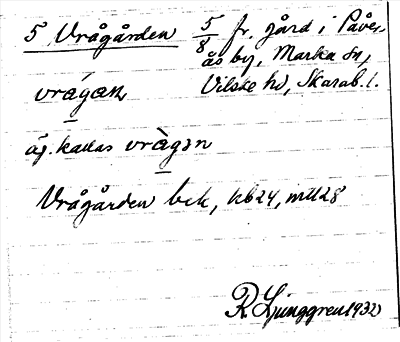 5 Vrågården 5/8 fr. gård i Påver-
ås by, Marka sn,
Vilske hd, Skarab. l.
vrágaɳ
äg. kallas vràgən
Vrågården bek, kb24, mtl28
R. Ljunggren 1932